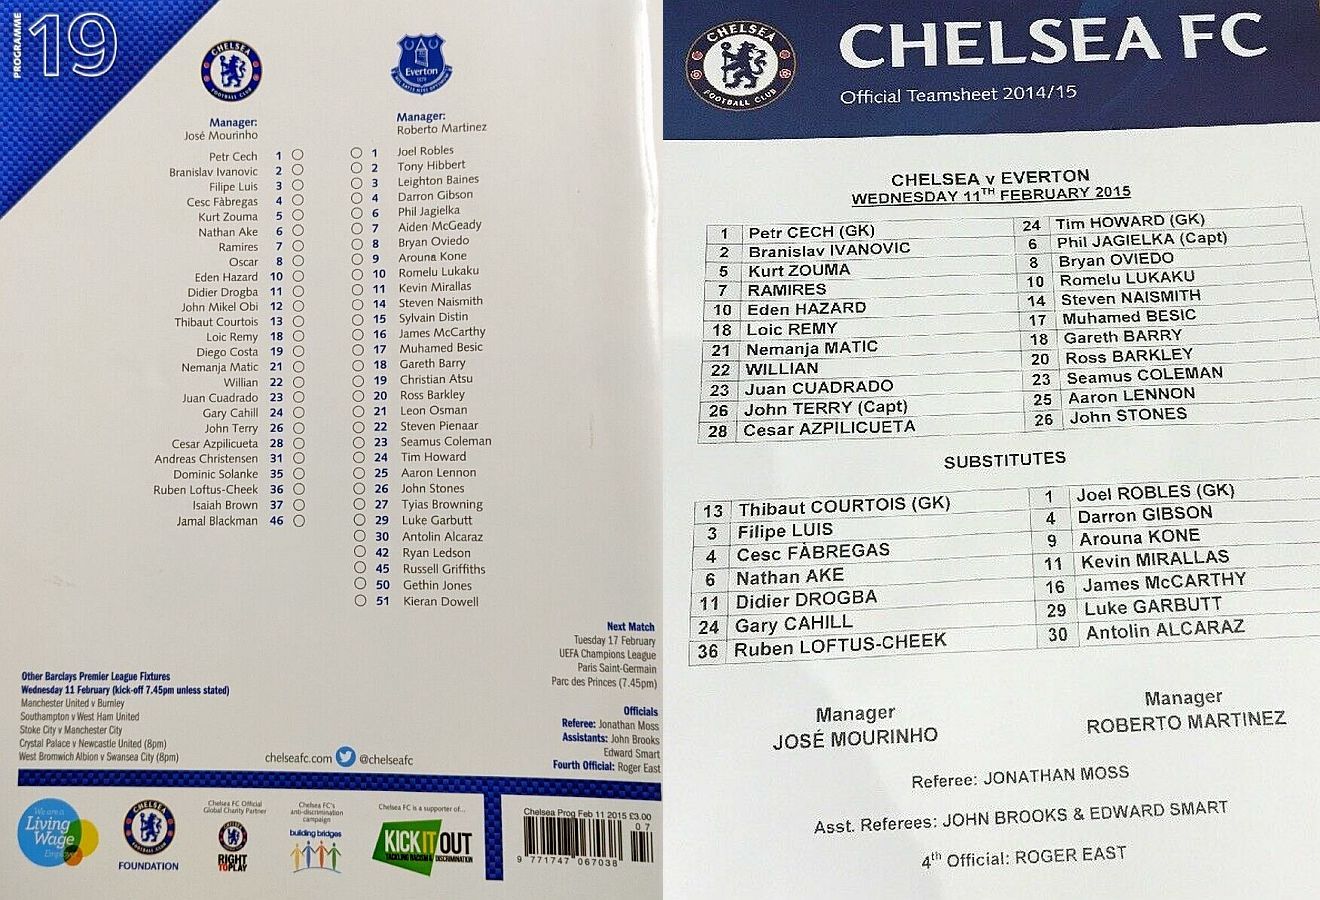 PROGRAMME
19
CHELSEA
FOOTBALL CLUB
Everton
1878
Manager:
José Mourinho
Petr Cech 1
Branislav Ivanovic 2
Filipe Luis 3
Cesc Fàbregas 4
Kurt Zouma 5
Nathan Ake 6
Ramires 7
Oscar 8
Eden Hazard 10
Didier Drogba 11
John Mikel Obi 12
Thibaut Courtois 13
Loic Remy 18
Diego Costa 19
Nemanja Matic 21
Willian 22
Juan Cuadrado 23
Gary Cahill 24
John Terry 26
Cesar Azpilicueta 28
Andreas Christensen 31
Dominic Solanke 35
Ruben Loftus-Cheek 36
Isaiah Brown 37
Jamal Blackman 46
Manager:
Roberto Martinez
1 Joel Robles
2 Tony Hibbert
3 Leighton Baines
4 Darron Gibson
6 Phil Jagielka
7 Aiden McGeady
8 Bryan Oviedo
9 Arouna Kone
10 Romelu Lukaku
11 Kevin Mirallas
14 Steven Naismith
15 Sylvain Distin
16 James McCarthy
17 Muhamed Besic
18 Gareth Barry
19 Christian Atsu
20 Ross Barkley
21 Leon Osman
22 Steven Pienaar
23 Seamus Coleman
24 Tim Howard
25 Aaron Lennon
26 John Stones
27 Tyias Browning
29 Luke Garbutt
30 Antolin Alcaraz
42 Ryan Ledson
45 Russell Griffiths
50 Gethin Jones
51 Kieran Dowell
Next Match
Tuesday 17 February
UEFA Champions League
Paris Saint-Germain
Parc des Princes (7.45pm)
Other Barclays Premier League Fixtures
Wednesday 11 February (kick-off 7.45pm unless stated)
Manchester United v Burnley
Southampton v West Ham United
Stoke City v Manchester City
Crystal Palace v Newcastle United (8pm)
West Bromwich Albion v Swansea City (8pm)
chelseafc.com @chelseafc
Officials
Referee: Jonathan Moss
Assistants: John Brooks
Edward Smart
Fourth Official: Roger East
We are a
Living
Wage
Employer
CHELSEA
FOOTBALL CLUB
FOUNDATION
Chelsea FC Official
Global Charity Partner
RIGHT
TO PLAY
Chelsea FC's
anti-discrimination
campaign
building bridges
Chelsea FC is a supporter of...
KICK IT OUT
TACKLING RACISM & DISCRIMINATION
Chelsea Prog Feb 11 2015 £3.00
07
9 771747 067038
CHELSEA
FOOTBALL CLUB
CHELSEA FC
Official Teamsheet 2014/15
CHELSEA v EVERTON
WEDNESDAY 11TH FEBRUARY 2015
1 Petr CECH (GK) 24 Tim HOWARD (GK)
2 Branislav IVANOVIC 6 Phil JAGIELKA (Capt)
5 Kurt ZOUMA 8 Bryan OVIEDO
7 RAMIRES 10 Romelu LUKAKU
10 Eden HAZARD 14 Steven NAISMITH
18 Loic REMY 17 Muhamed BESIC
21 Nemanja MATIC 18 Gareth BARRY
22 WILLIAN 20 Ross BARKLEY
23 Juan CUADRADO 23 Seamus COLEMAN
26 John TERRY (Capt) 25 Aaron LENNON
28 Cesar AZPILICUETA 26 John STONES
SUBSTITUTES
13 Thibaut COURTOIS (GK) 1 Joel ROBLES (GK)
3 Filipe LUIS 4 Darron GIBSON
4 Cesc FÀBREGAS 9 Arouna KONE
6 Nathan AKE 11 Kevin MIRALLAS
11 Didier DROGBA 16 James McCARTHY
24 Gary CAHILL 29 Luke GARBUTT
36 Ruben LOFTUS-CHEEK 30 Antolin ALCARAZ
Manager
JOSÉ MOURINHO
Manager
ROBERTO MARTINEZ
Referee: JONATHAN MOSS
Asst. Referees: JOHN BROOKS & EDWARD SMART
4th Official: ROGER EAST